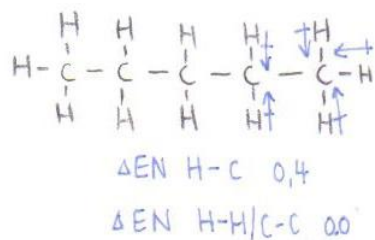 H H H H H
H - C - C - C - C - C - H
H H H H H
ΔEN H-C 0,4
ΔEN H-H/C-C 0.0